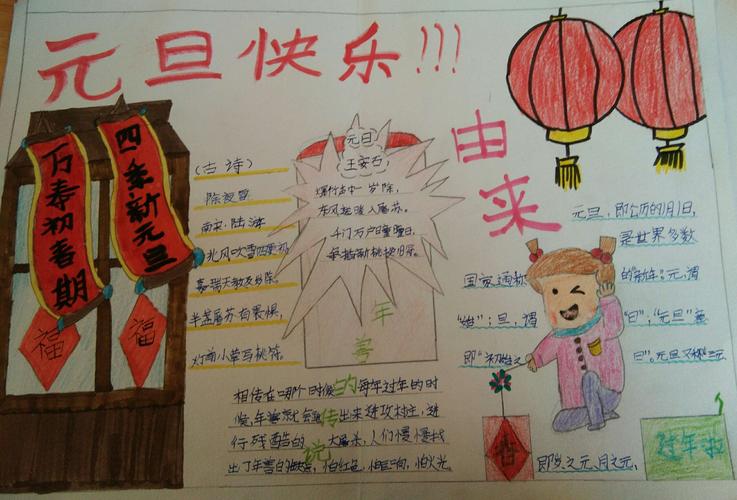 元旦快乐!!!
四季新元旦
万寿初春期
福
福
(古诗)
除夜雪
南宋:陆游
北风吹雪四更初
嘉瑞天教及岁除。
半盏屠苏
灯前小草写桃符。
元日
王安石
爆竹声中一岁除,
东风送暖入屠苏。
千门万户曈曈日,
总把新桃换旧符。
年兽
的传说
相传在哪个时候每年过年的时
候,年兽就会出来进攻村庄,进
行残酷的大屠杀,人们慢慢找
出了年兽的,怕红色,怕巨响,怕火光。
由来
元旦,即公历的1月1日,
是世界多数
国家通称的"新年"。元,谓
"始";旦,谓"日";"元旦"意
即"初始之日"。元旦又称"三元
即岁之元、月之元、
过年啦